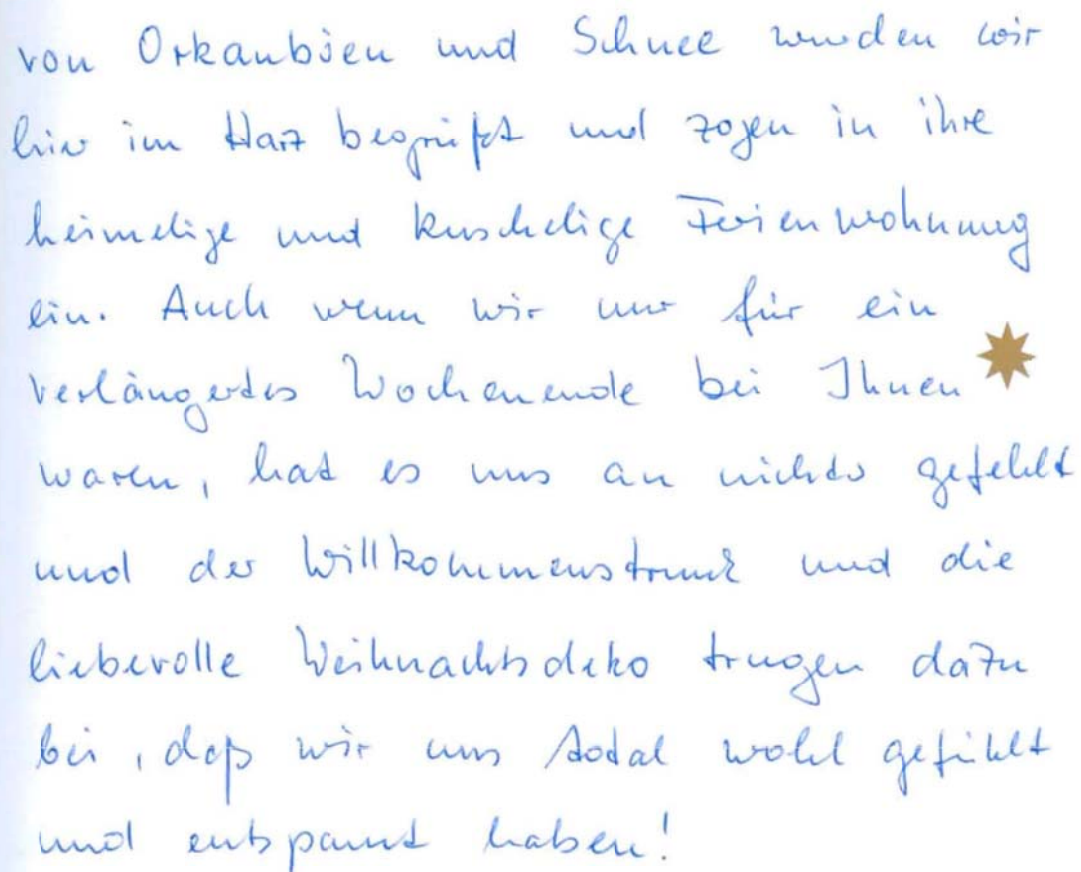 von Orkanböen und Schnee wurden wir
hier im Harz begrüßt und zogen in ihre
heimelige und kuschelige Ferienwohnung
ein. Auch wenn wir nur für ein
verlängertes Wochenende bei Ihnen
waren, hat es uns an nichts gefehlt
und der Willkommenstrunk und die
liebevolle Weihnachtsdeko trugen dazu
bei, daß wir uns total wohl gefühlt
und entspannt haben!